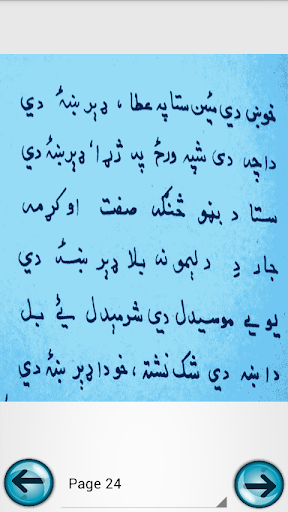 خوښ دي مئين ستا په عطا ، ډېر ښۀ دي
دا چه دی شپه ورځ په ژړا ، ډېر ښۀ دي
ستا د بڼو څنګه صفت اوکړمه
جار د دليمو نه بلا ډېر ښۀ دي
يو يې موسيدل دي شرميدل ئې بل
دا ښه دي شک نشته ، خو دا ډېر ښۀ دي
Page 24